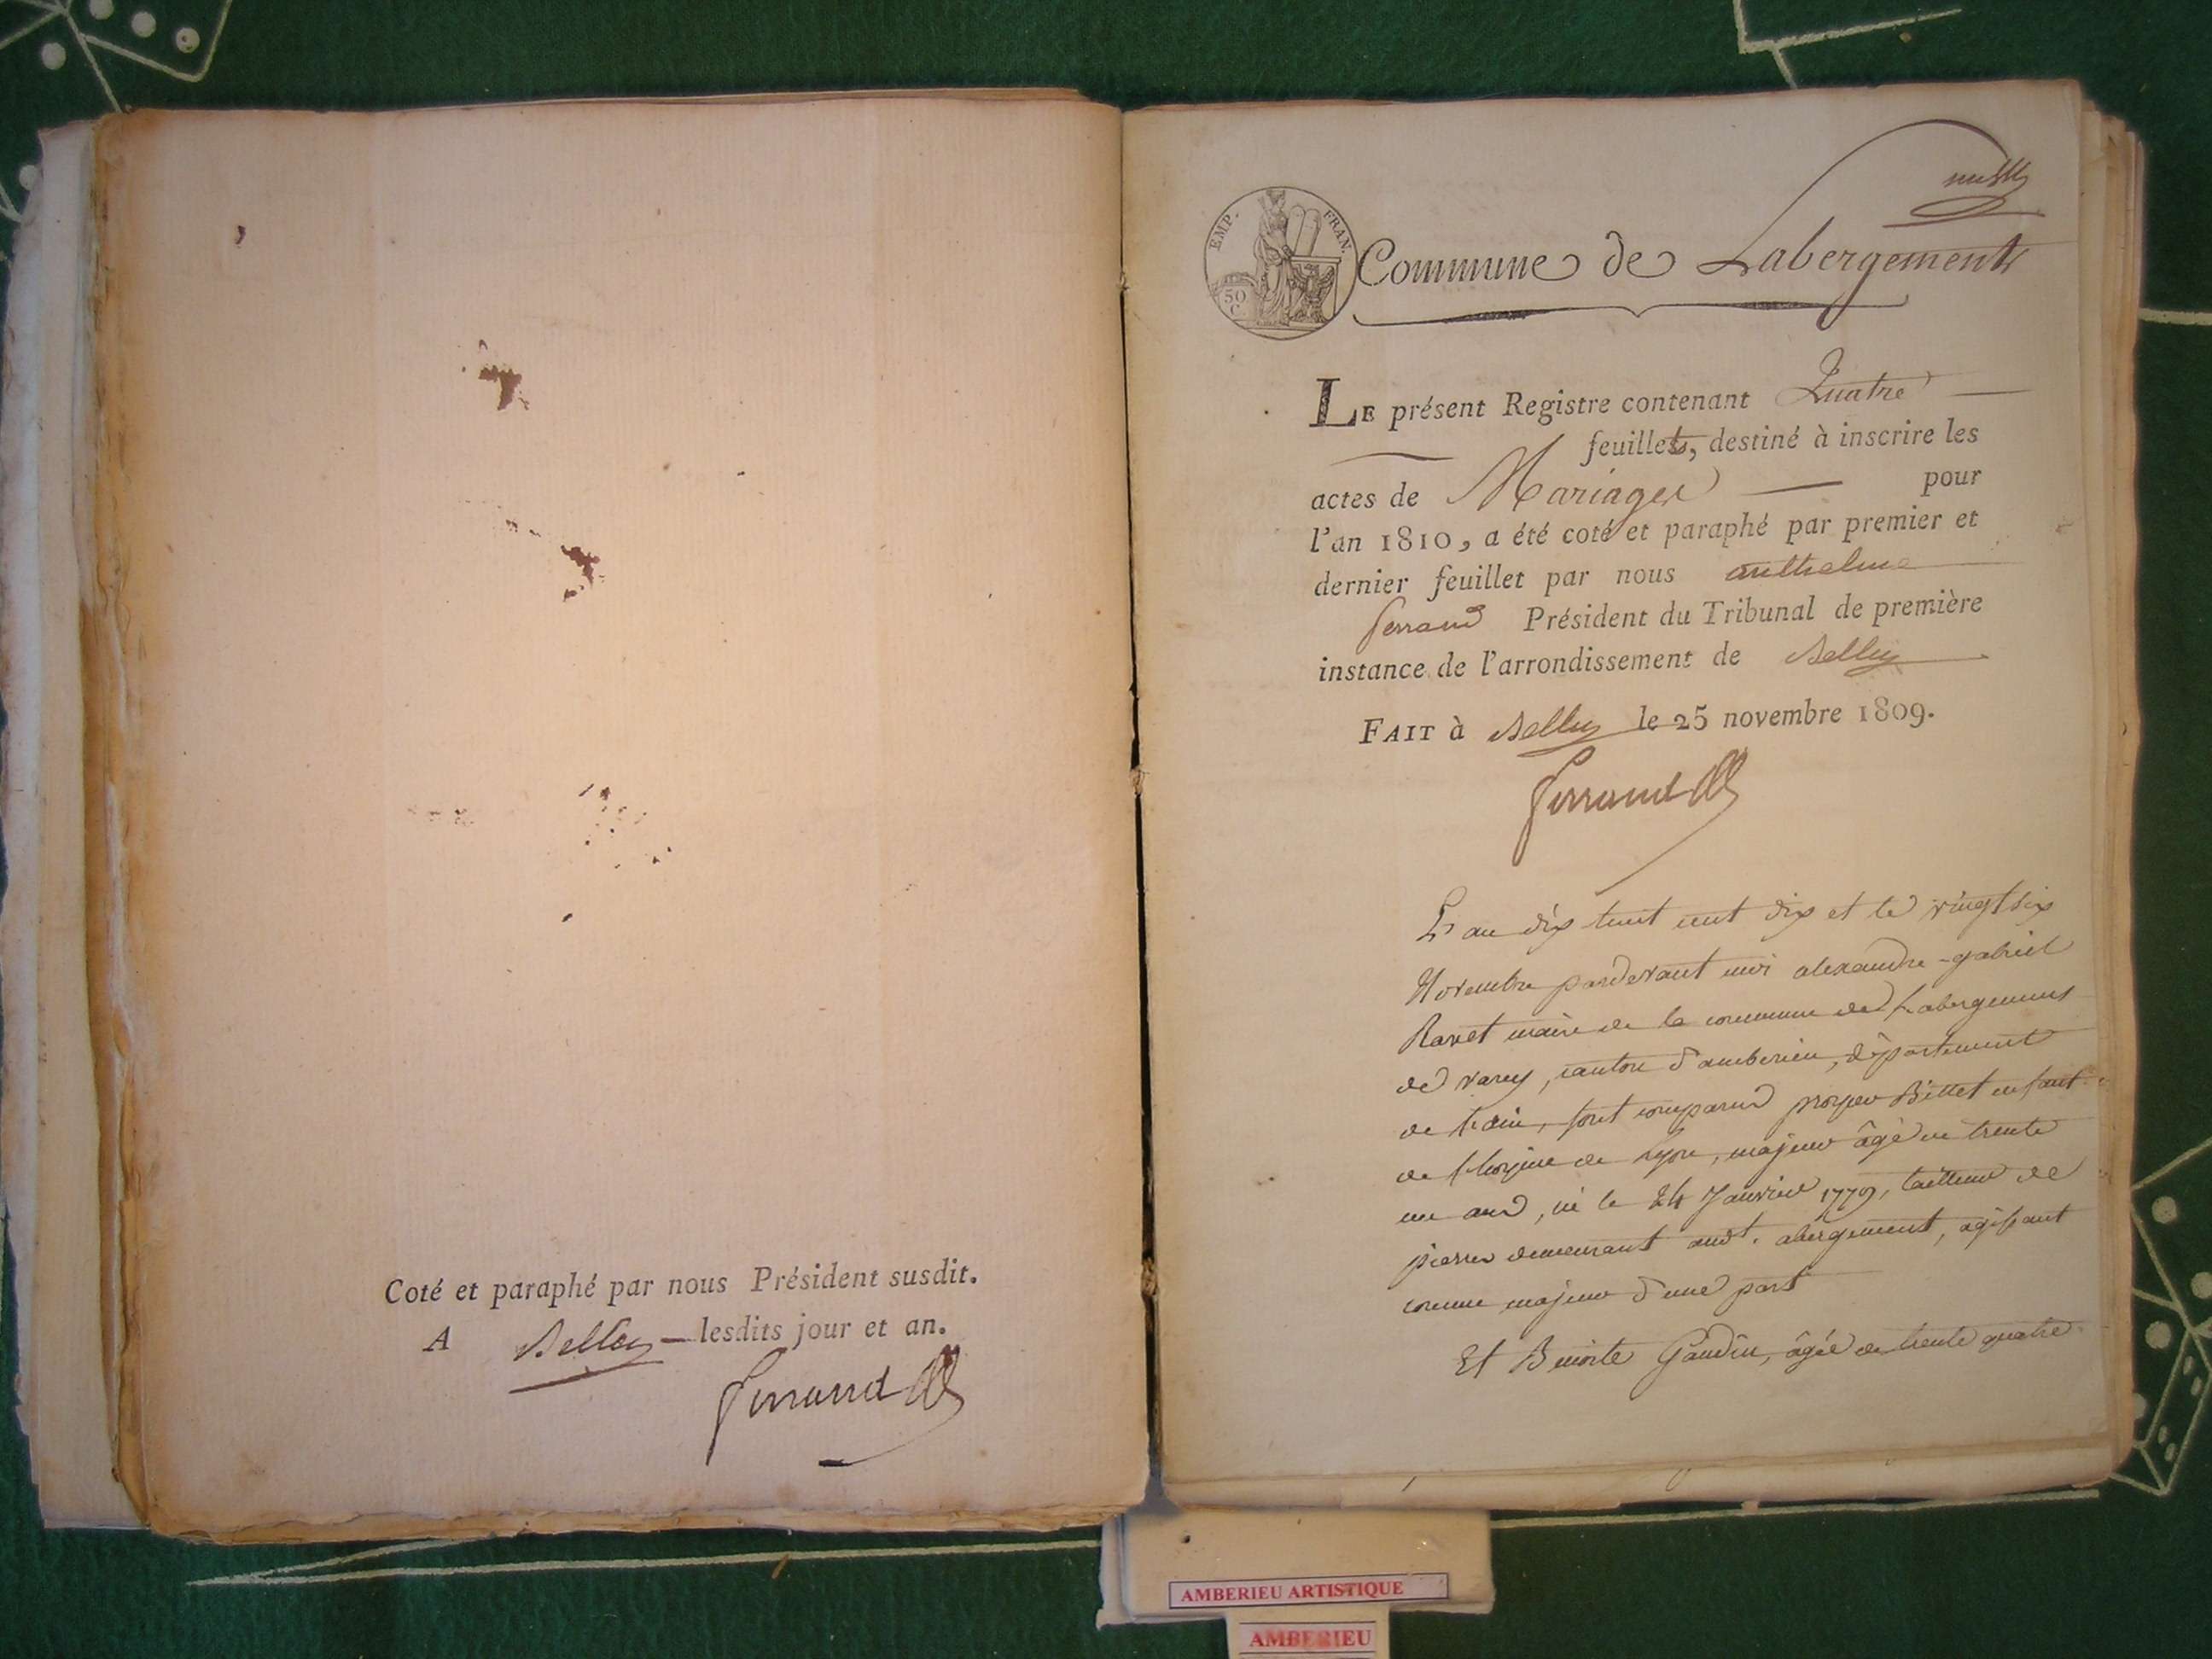 Coté et paraphé par nous Président susdit.
A Belley lesdits jour et an.
Ferrand
EMP. FRAN.
50
C.
Commune de Labergement
LE présent Registre contenant Quatre
feuillets, destiné à inscrire les
actes de Mariages pour
l'an 1810, a été coté et paraphé par premier et
dernier feuillet par nous anthelme
ferrand Président du Tribunal de première
instance de l'arrondissement de Belley
FAIT à Belley le 25 novembre 1809.
Ferrand
L'an dix huit cent dix et le vingt six
Novembre pardevant moi alexandre-gabriel
Ravet maire de la commune de Labergement
de varey, canton d'amberieu, département
de l'ain, sont comparus Billet enfant
de l'hospice de Lyon, majeur âgé de trente
un ans, né le 24 Janvier 1779, tailleur de
pierres demeurant audt. abergement, agissant
comme majeur d'une part
Et Benoite Gaudin, âgée de trente quatre
AMBERIEU ARTISTIQUE
AMBERIEU